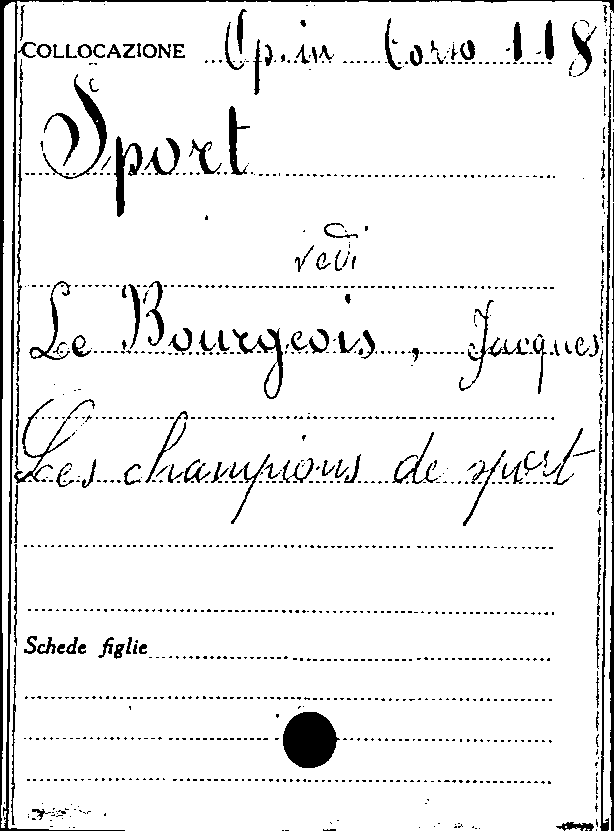 COLLOCAZIONE Op. in Corso 118
Sport
vedi
Le Bourgeois, Jacques
Les champions de sport
Schede figlie